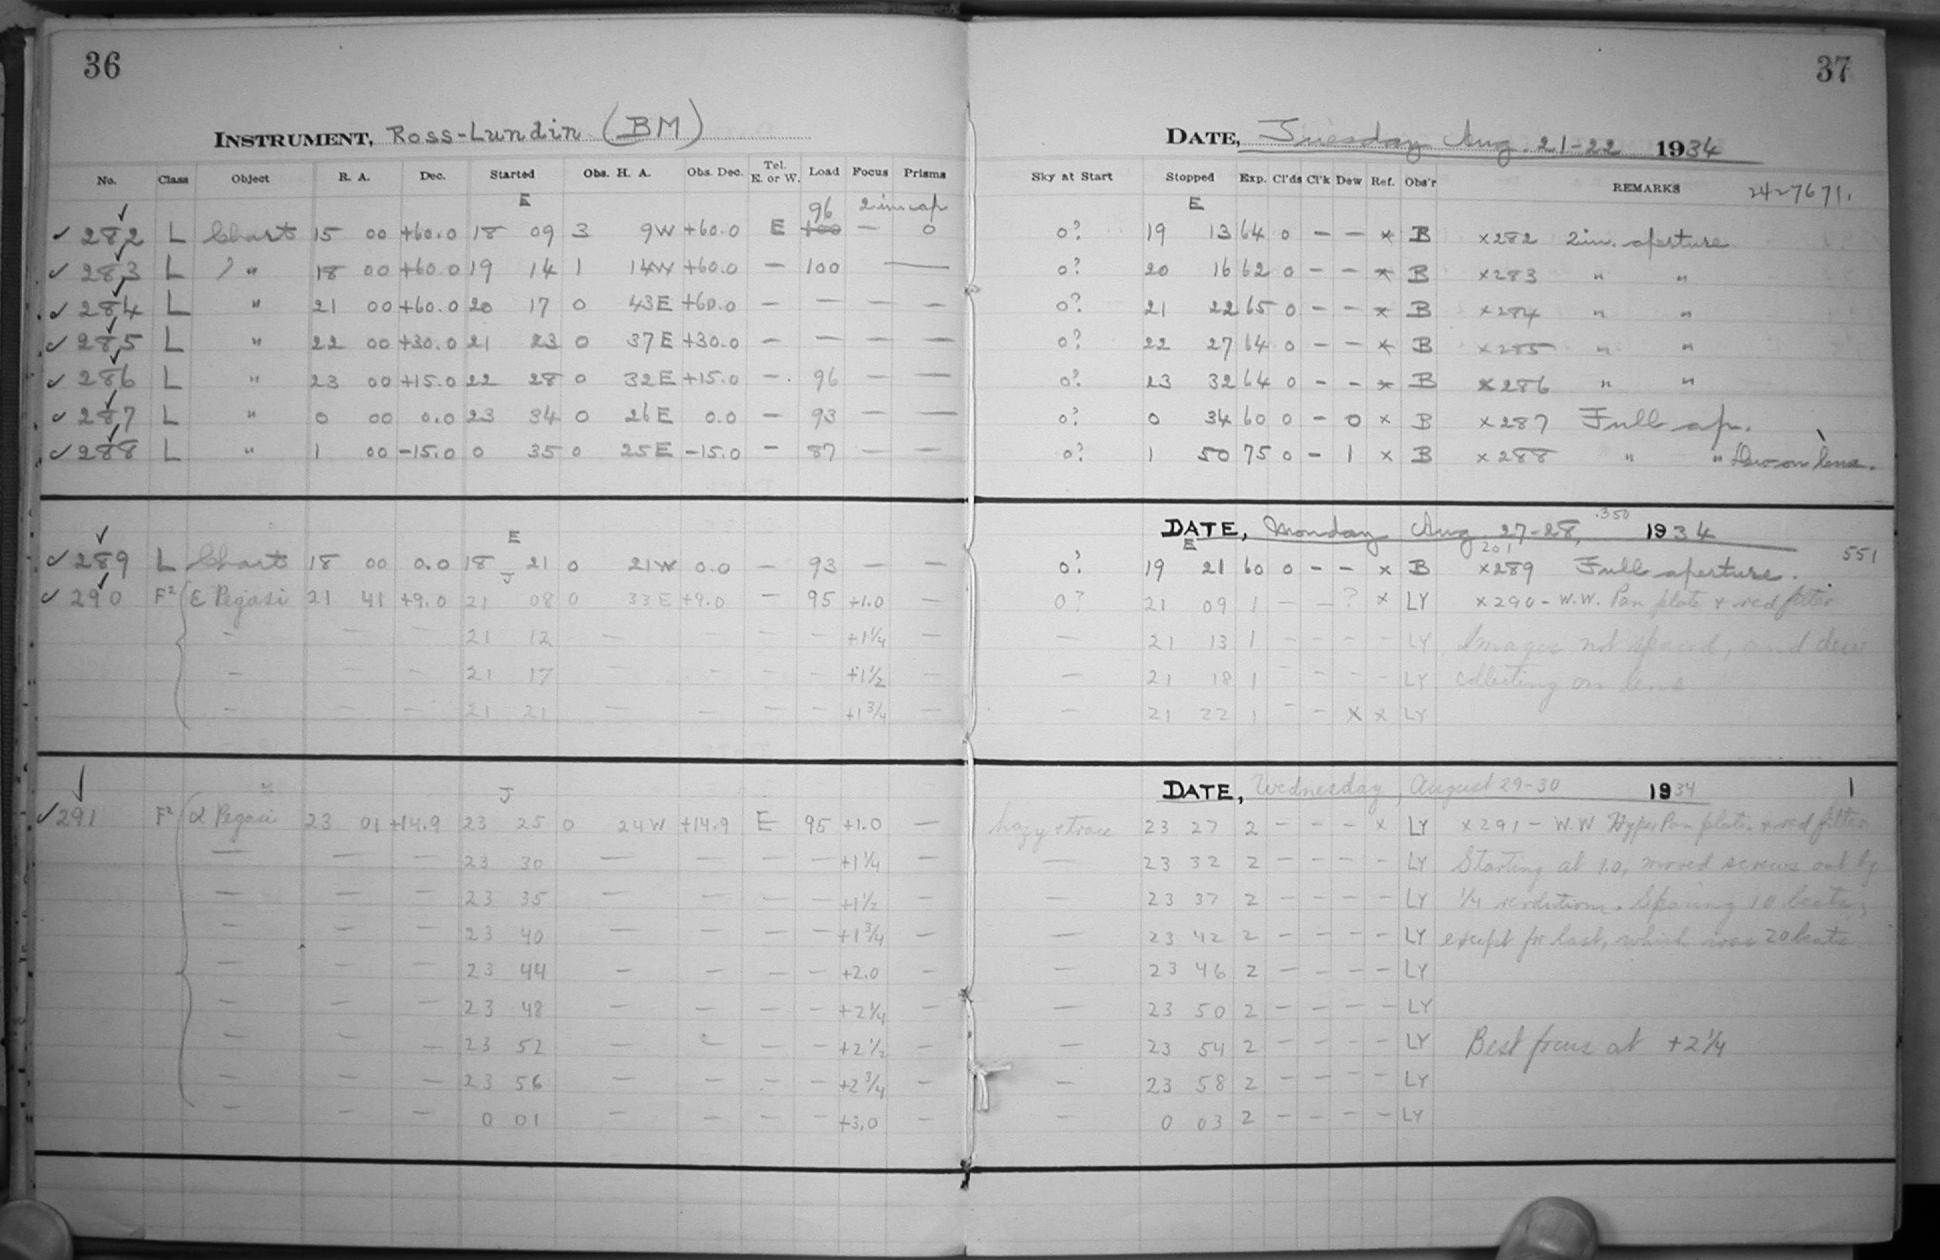 36
INSTRUMENT, Ross-Lundin (BM)
No. Class Object R. A. Dec. Started Obs. H. A. Obs. Dec. Tel. E. or W. Load Focus Prisms
E 96 2 in cap
✓ 282 L Chart 15 00 +60.0 18 09 3 9W +60.0 E 100 — 0
✓ 283 L " 18 00 +60.0 19 14 1 14W +60.0 — 100 —
✓ 284 L " 21 00 +60.0 20 17 0 43E +60.0 — — — —
✓ 285 L " 22 00 +30.0 21 23 0 37E +30.0 — — — —
✓ 286 L " 23 00 +15.0 22 28 0 32E +15.0 — 96 — —
✓ 287 L " 0 00 0.0 23 34 0 26E 0.0 — 93 — —
✓ 288 L " 1 00 -15.0 0 35 0 25E -15.0 — 87 — —
E
✓ 289 L Chart 18 00 0.0 18 21 0 21W 0.0 — 93 — —
J
✓ 290 F² ε Pegasi 21 41 +9.0 21 08 0 33E +9.0 — 95 +1.0 —
— — — 21 12 — — — — +1¼ —
— — — 21 17 — — — — +1½ —
— — — 21 21 — — — — +1¾ —
J
✓ 291 F² α Pegasi 23 01 +14.9 23 25 0 24W +14.9 E 95 +1.0 —
— — — 23 30 — — — — +1¼ —
— — — 23 35 — — — — +1½ —
— — — 23 40 — — — — +1¾ —
— — — 23 44 — — — — +2.0 —
— — — 23 48 — — — — +2¼ —
— — — 23 52 — — — — +2½ —
— — — 23 56 — — — — +2¾ —
— — — 0 01 — — — — +3.0 —
37
DATE, Tuesday Aug. 21-22 1934
Sky at Start Stopped Exp. Cl'ds Cl'k Dew Ref. Obs'r REMARKS 2427671.
E
0? 19 13 64 0 — — × B ×282 2 in. aperture
0? 20 16 62 0 — — × B ×283 " "
0? 21 22 65 0 — — × B ×284 " "
0? 22 27 64 0 — — × B ×285 " "
0? 23 32 64 0 — — × B ×286 " "
0? 0 34 60 0 — 0 × B ×287 Full ap.
0? 1 50 75 0 — 1 × B ×288 " " Dew on lens.
DATE, Monday Aug 27-28, .350 1934
E 201 551
0? 19 21 60 0 — — × B ×289 Full aperture.
0? 21 09 1 — — ? × LY ×290 - W.W. Pan plate & red filter
— 21 13 1 — — — — LY Images not spaced, and dew
— 21 18 1 — — — — LY collecting on lens
— 21 22 1 — — × × LY
DATE, Wednesday, August 29-30 1934 1
hazy & trace 23 27 2 — — — × LY ×291 - W.W HyperPan plate. & red filter
— 23 32 2 — — — — LY Starting at 1.0, moved screws out by
— 23 37 2 — — — — LY ¼ revolutions. Spacing 10 beats,
— 23 42 2 — — — — LY except for last, which was 20 beats
— 23 46 2 — — — — LY
— 23 50 2 — — — — LY
— 23 54 2 — — — — LY Best focus at +2¼
— 23 58 2 — — — — LY
— 0 03 2 — — — — LY